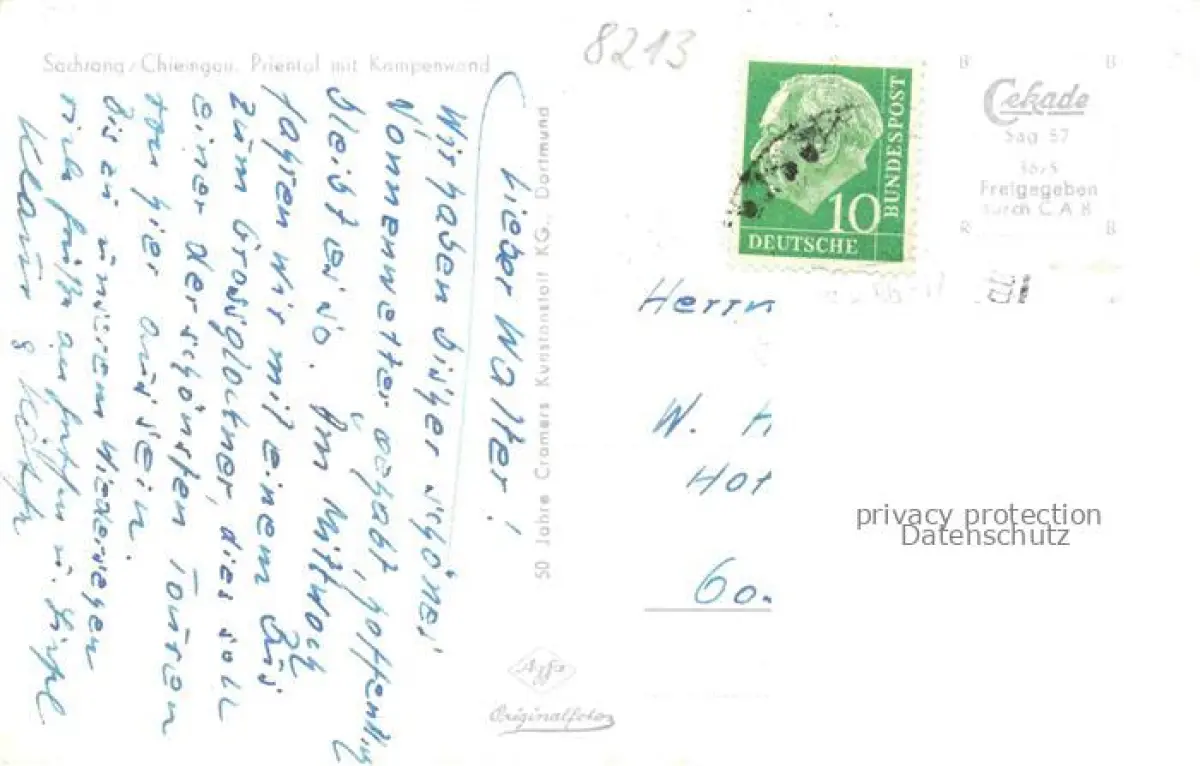 8213
Sachrang/Chiemgau. Priental mit Kampenwand
Lieber Walter!
Wir haben bisher schönes
Sonnenwetter gehabt, hoffentlich
bleibt es so. Am Mittwoch
fahren wir mit einem Bus
zum Grossglockner, dies soll
einer der schönsten Touren
von hier aus sein.
Bis zu unserem Wiedersehen
Klaus &
50 Jahre Cramers Kunstanstalt KG., Dortmund
Agfa
Originalfoto
10
DEUTSCHE
BUNDESPOST
R B
Cekade
Sag 57
Freigegeben
durch C A B
R B
Herrn
W.
privacy protection
Datenschutz